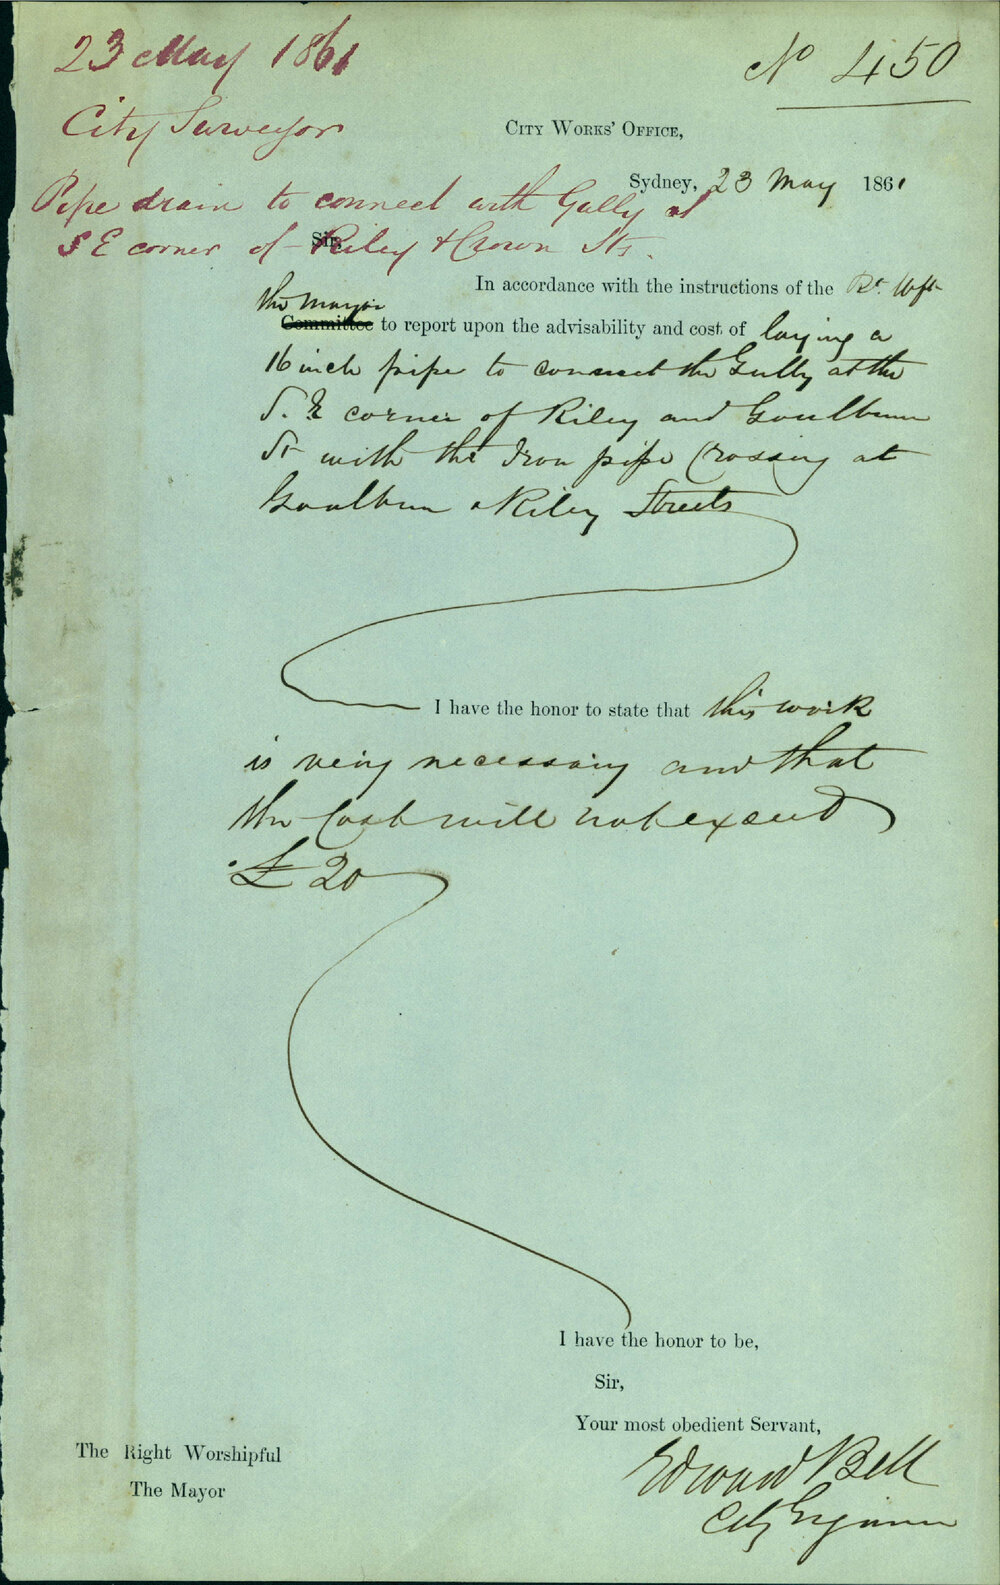 23 May 1861
No 450
City Surveyor
CITY WORKS' OFFICE,
Sydney, 23 May 1861
Pipe drain to connect with Gully at
S E corner of Riley & Crown Sts.
Sir,
In accordance with the instructions of the Rt. Wpfl
the Mayor
Committee to report upon the advisability and cost of laying a
16 inch pipe to connect the Gully at the
S. E corner of Riley and Goulburn
St with the Iron pipe Crossing at
Goulburn & Riley Streets
I have the honor to state that this work
is very necessary and that
the Cost will not exceed
£20
I have the honor to be,
Sir,
Your most obedient Servant,
Edward Bell
City Engineer
The Right Worshipful
The Mayor